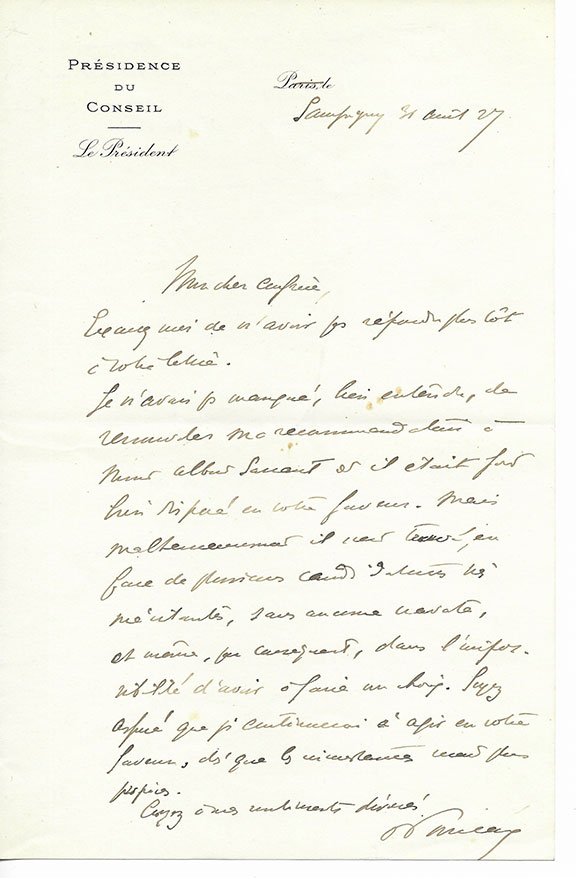 PRÉSIDENCE
DU
CONSEIL
Le Président
Paris, le
Sampigny 31 août 27
Mon cher confrère,
Excusez moi de n'avoir pas répondu plus tôt
à votre lettre.
Je n'avais pas manqué, bien entendu, de
renouveler ma recommandation à
Albert Sarraut et il était fort
bien disposé en votre faveur. Mais
malheureusement il s'est trouvé, en
face de plusieurs candidatures très
méritantes, sans aucune vacante,
et même, par conséquent, dans l'impos-
sibilité d'avoir à faire un choix. Soyez
assuré que je continuerai à agir en votre
faveur, dès que les circonstances seront plus
propices.
Croyez à mes sentiments dévoués
R Poincaré